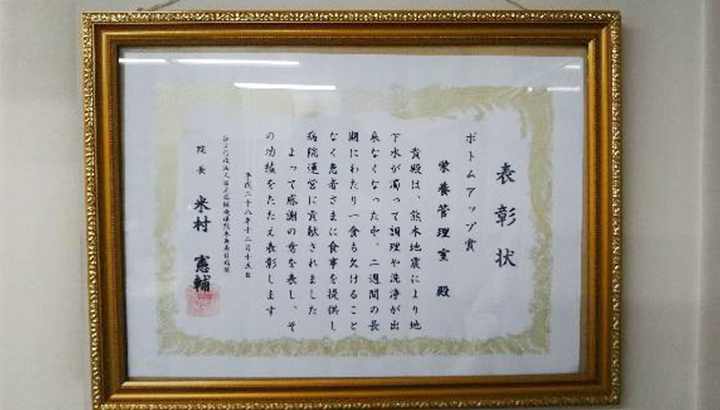 表彰状
ボトムアップ賞
栄養管理室 殿
貴殿は、熊本地震により地
下水が濁って調理や洗浄が出
来なくなった中、二週間の長
期にわたり一食も欠けること
なく患者さまに食事を提供し
病院運営に貢献されました
よって感謝の意を表し、そ
の功績をたたえ表彰します
平成二十八年十二月十五日
院長 米村 憲輔